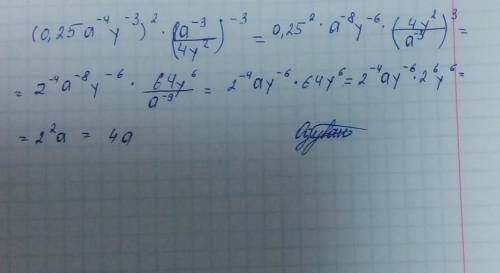 (0,25a⁻⁴y⁻³)² · (a⁻³/(4y²))⁻³ = 0,25² · a⁻⁸y⁻⁶ · (4y²/a⁻³)³ =
= 2⁻⁴a⁻⁸y⁻⁶ · 64y⁶/a⁻⁹ = 2⁻⁴ay⁻⁶ · 64y⁶ = 2⁻⁴ay⁻⁶ · 2⁶y⁶ =
= 2²a = 4a